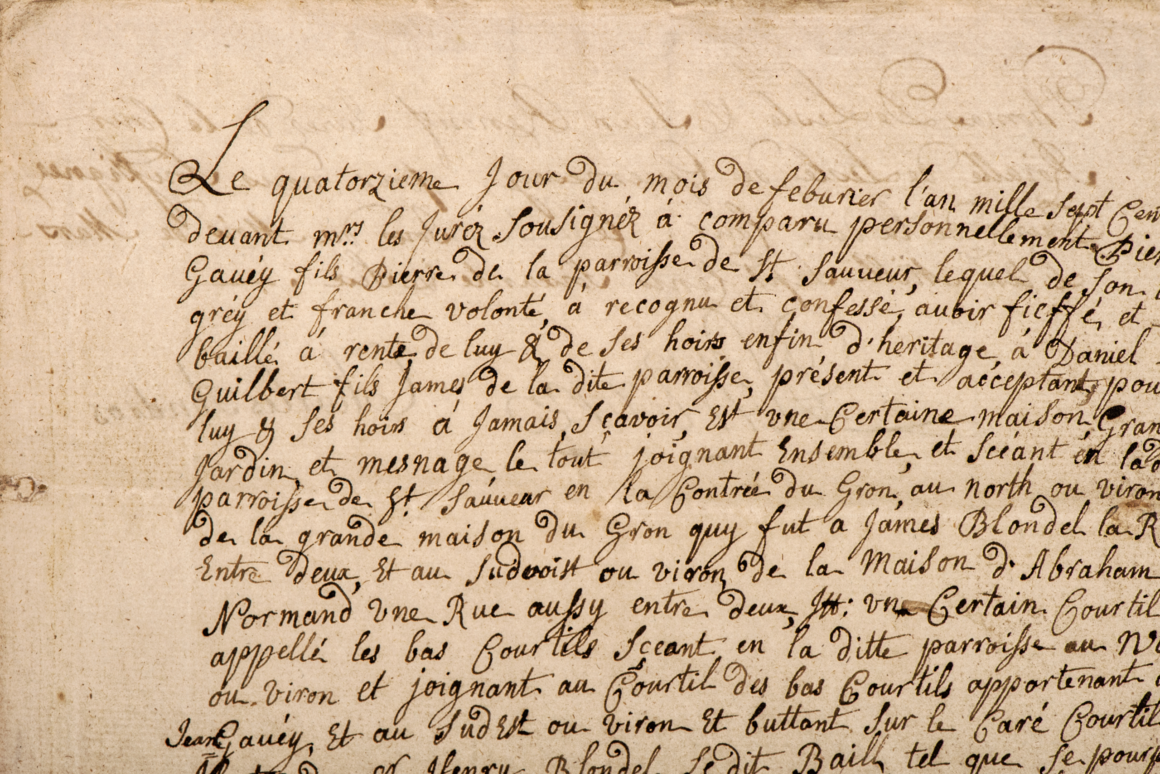 Le quatorzieme Jour du mois de feburier l'an mille sept Cen
devant mrs les Juréz Sousignéz à comparu personnellement Pier
Gavéy fils Pierre de la parroisse de St Sauveur, lequel de son
gréy et franche volonté, à recognu et confessé, avoir fieffé, et
baillé à rente de luy & de ses hoirs enfin d'heritage à Daniel
Guilbert fils James de la dite parroisse, présent et acceptant pou
luy & ses hoirs à Jamais, sçavoir, Est une Certaine maison Gran
Jardin et mesnage le tout joignant Ensemble, et scéant én la d
parroisse de St Sauveur en la Contrée du Gron, au north ou viron
de la grande maison du Gron quy fut a James Blondel la R
Entre deux, Et au Sudvoist ou viron de la Maison d'Abraham
Normand une Rue aussy entre deux, Itt: un Certain Courtil
appellé les bas Courtils Sçeant en la ditte parroisse au No
ou viron et joignant au Courtil des bas Courtils appartenant
Jean Gavéy, Et au Sudest ou viron Et buttant sur le Caré Courtil
Henry Blondel, Sedit Baill tel que se pourp